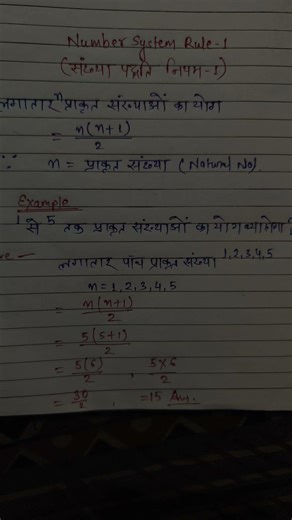 Number System Rule-1
(संख्या पद्धति नियम-1)
लगातार n प्राकृत संख्याओं का योग
= n(n+1)/2
∵ n = प्राकृत संख्या (Natural No).
Example
1 से 5 तक प्राकृत संख्याओं का योग क्या होगा
लगातार पाँच प्राकृत संख्या 1,2,3,4,5
n = 1,2,3,4,5
= n(n+1)/2
= 5(5+1)/2
= 5(6)/2 , 5×6/2
= 30/2 , =15 Ans.